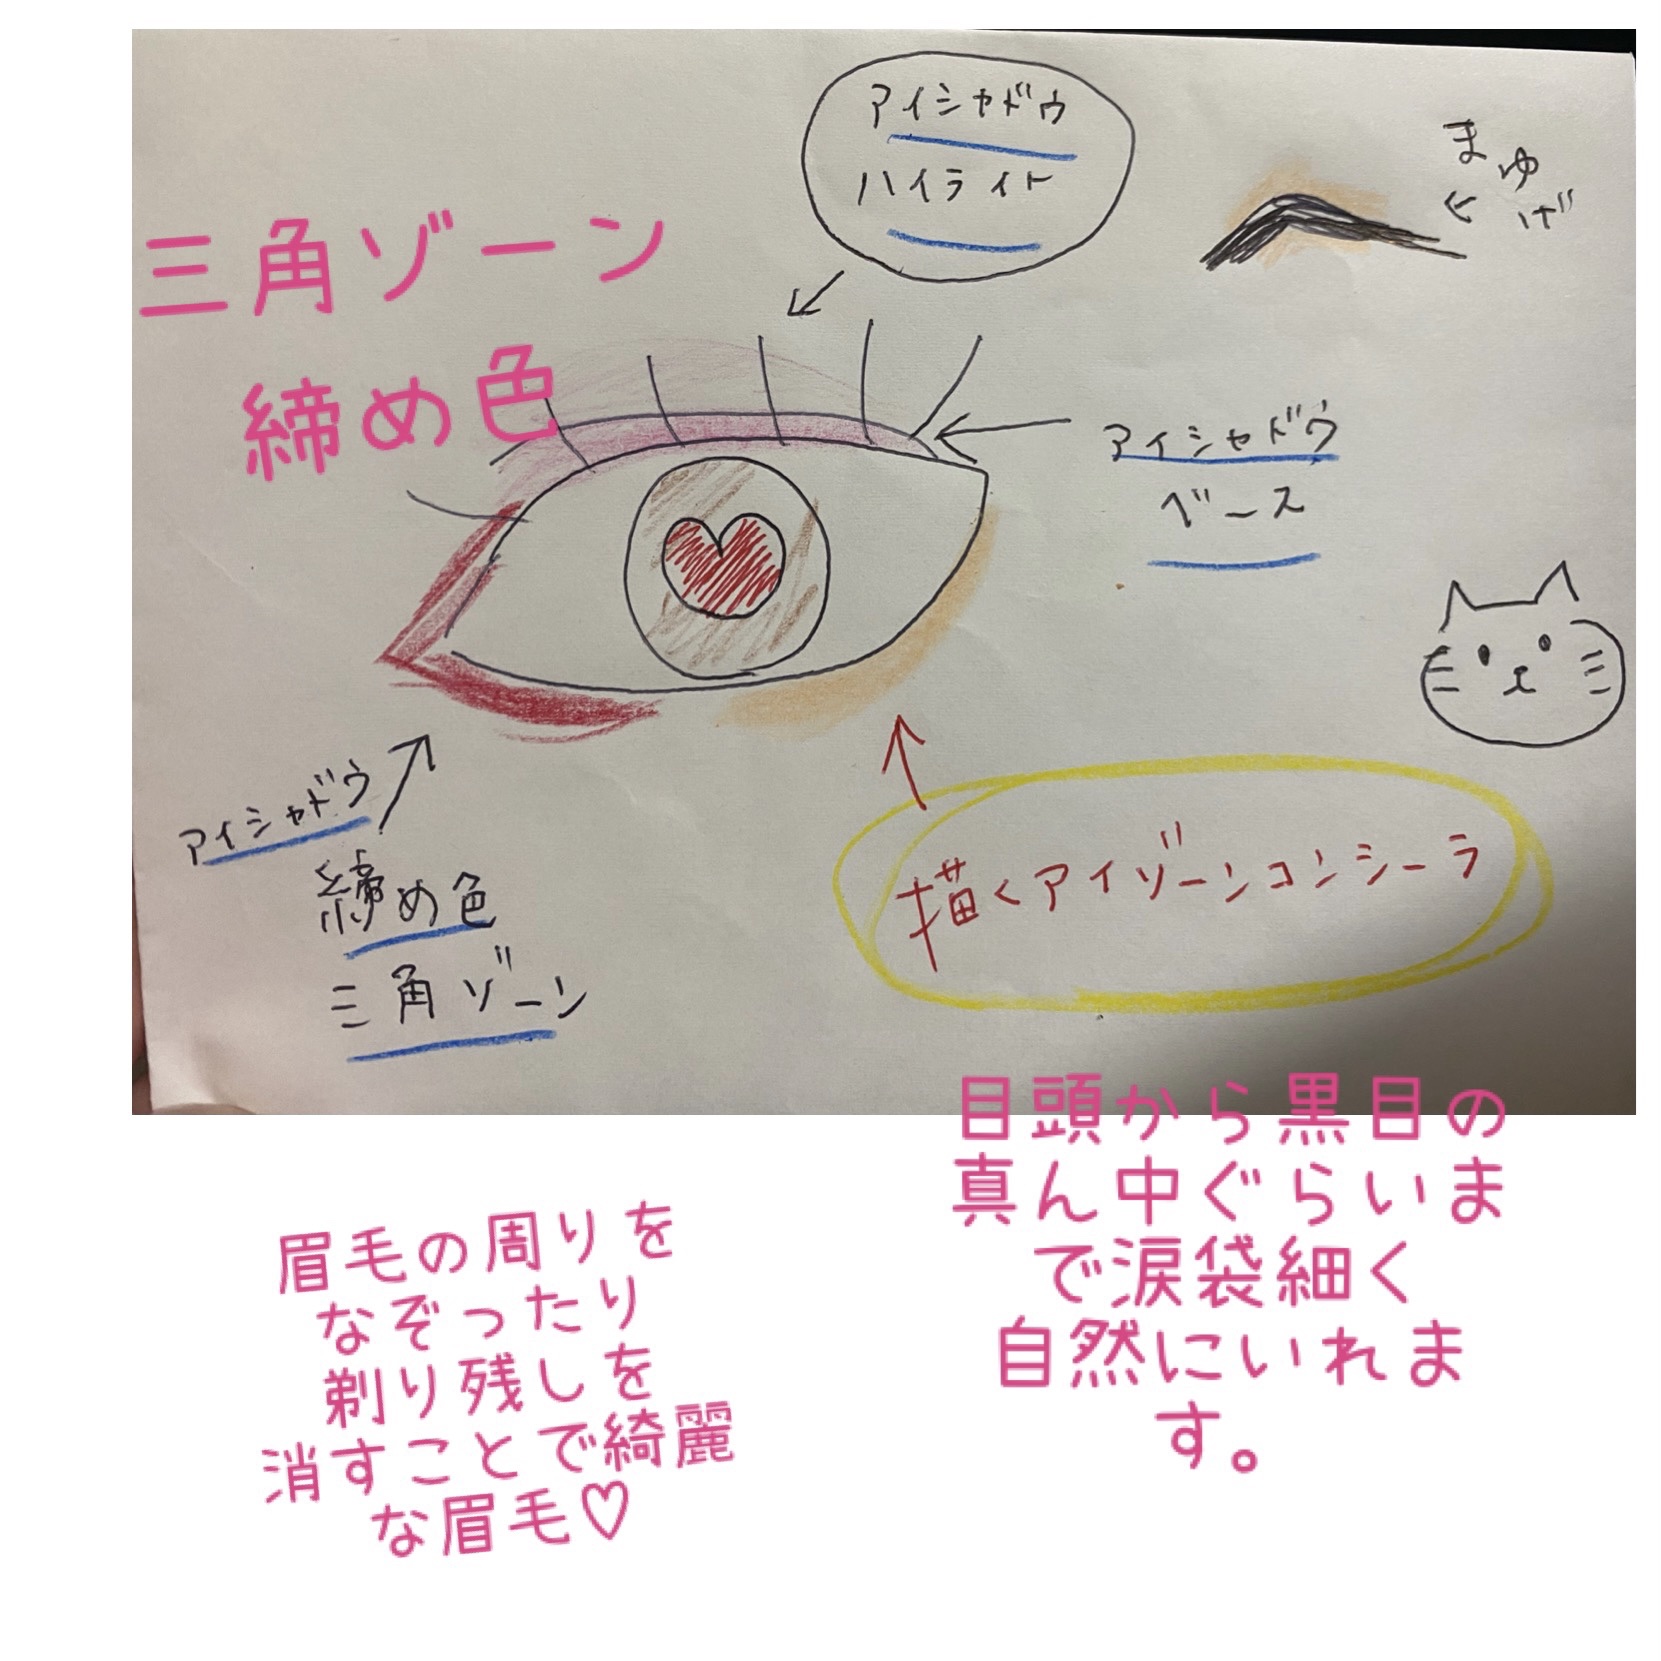 アイシャドウ
ハイライト
まゆげ
三角ゾーン
締め色
アイシャドウ
ベース
アイシャドウ
締め色
三角ゾーン
描くアイゾーンコンシーラ
目頭から黒目の
真ん中ぐらいま
で涙袋細く
自然にいれま
す。
眉毛の周りを
なぞったり
剃り残しを
消すことで綺麗
な眉毛♡